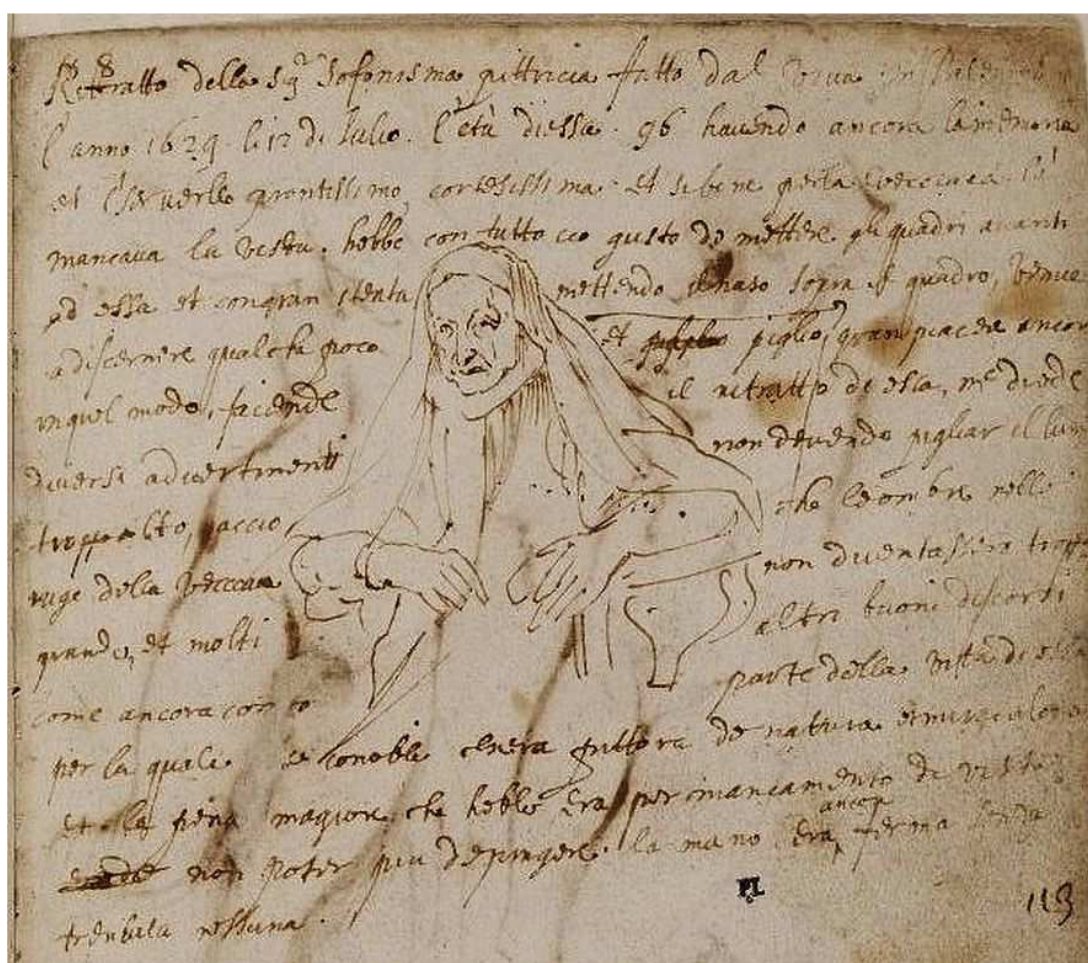 Rittratto della Sigra Sofonisma pittricia fatto dal vivo in Palermo
l'anno 1629 li 12 di Julio. l'età di essa 96 havendo ancora la memoria
et il serverllo prontissimo, cortesissima. et sibene per la vecciaia la
mancava la vista. hebbe con tutto cio gusto de mettere gli quadri avanti
ad essa et con gran stenta mettendo il naso sopra il quadro, venne
a discernere qualche poco et piglio gran piacere ancora
in quel modo, faciendo il ritratto di essa, me diede
diversi advertimenti non devendo pigliar il lume
troppo alto, acciò che le ombre nelle
ruge della vecciaia non diventassero troppo
grande, et molti altri buoni discorsi
come ancora conto parte della vitta di essa
per la quale se conobbe ch'era pittora de natura et miracolosa
et la pena magiore che hebbe era per mancamento di vista
non poter piu depingere. la mano era ancora ferma senza
trembula nessuna.
PL
113